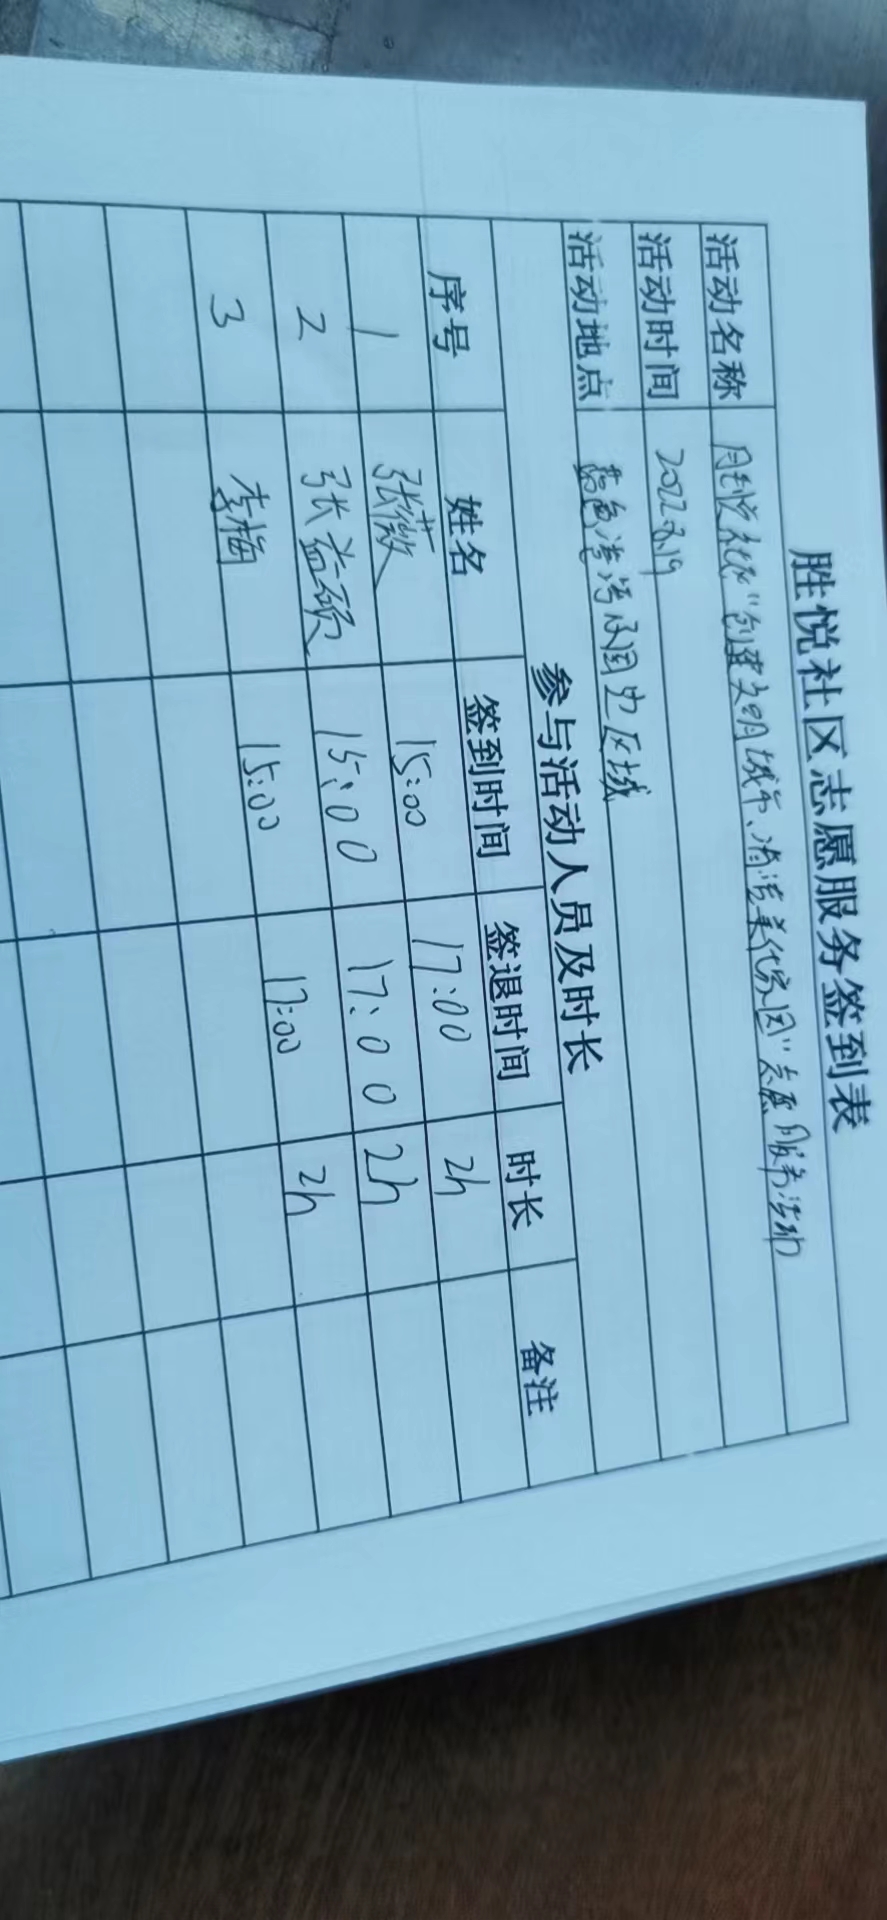 胜悦社区志愿服务签到表
活动名称 胜悦社区"创建文明城市、清洁美化家园"志愿服务活动
活动时间 2022.8.19
活动地点 碧色湾湾及周边区域
参与活动人员及时长
序号 姓名 签到时间 签退时间 时长 备注
1 张薇 15:00 17:00 2h
2 张益硕 15:00 17:00 2h
3 李梅 15:00 17:00 2h